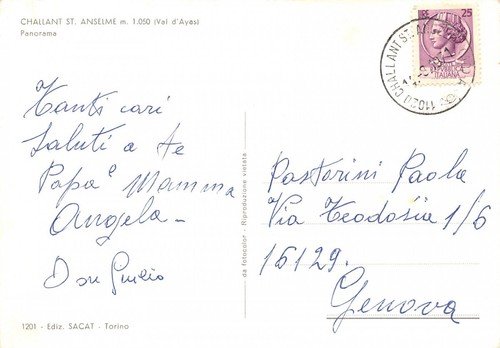 CHALLANT ST. ANSELME m. 1.050 (Val d'Ayas)
Panorama
Tanti cari
saluti a te
Papa e Mamma
Angela -
Don Giulio
1201 - Ediz. SACAT - Torino
da fotocolor - Riproduzione vietata
25
ITALIANA
11020 CHALLANT ST.
Pastorini Paola
Via Teodosia 1/6
16129.
Genova